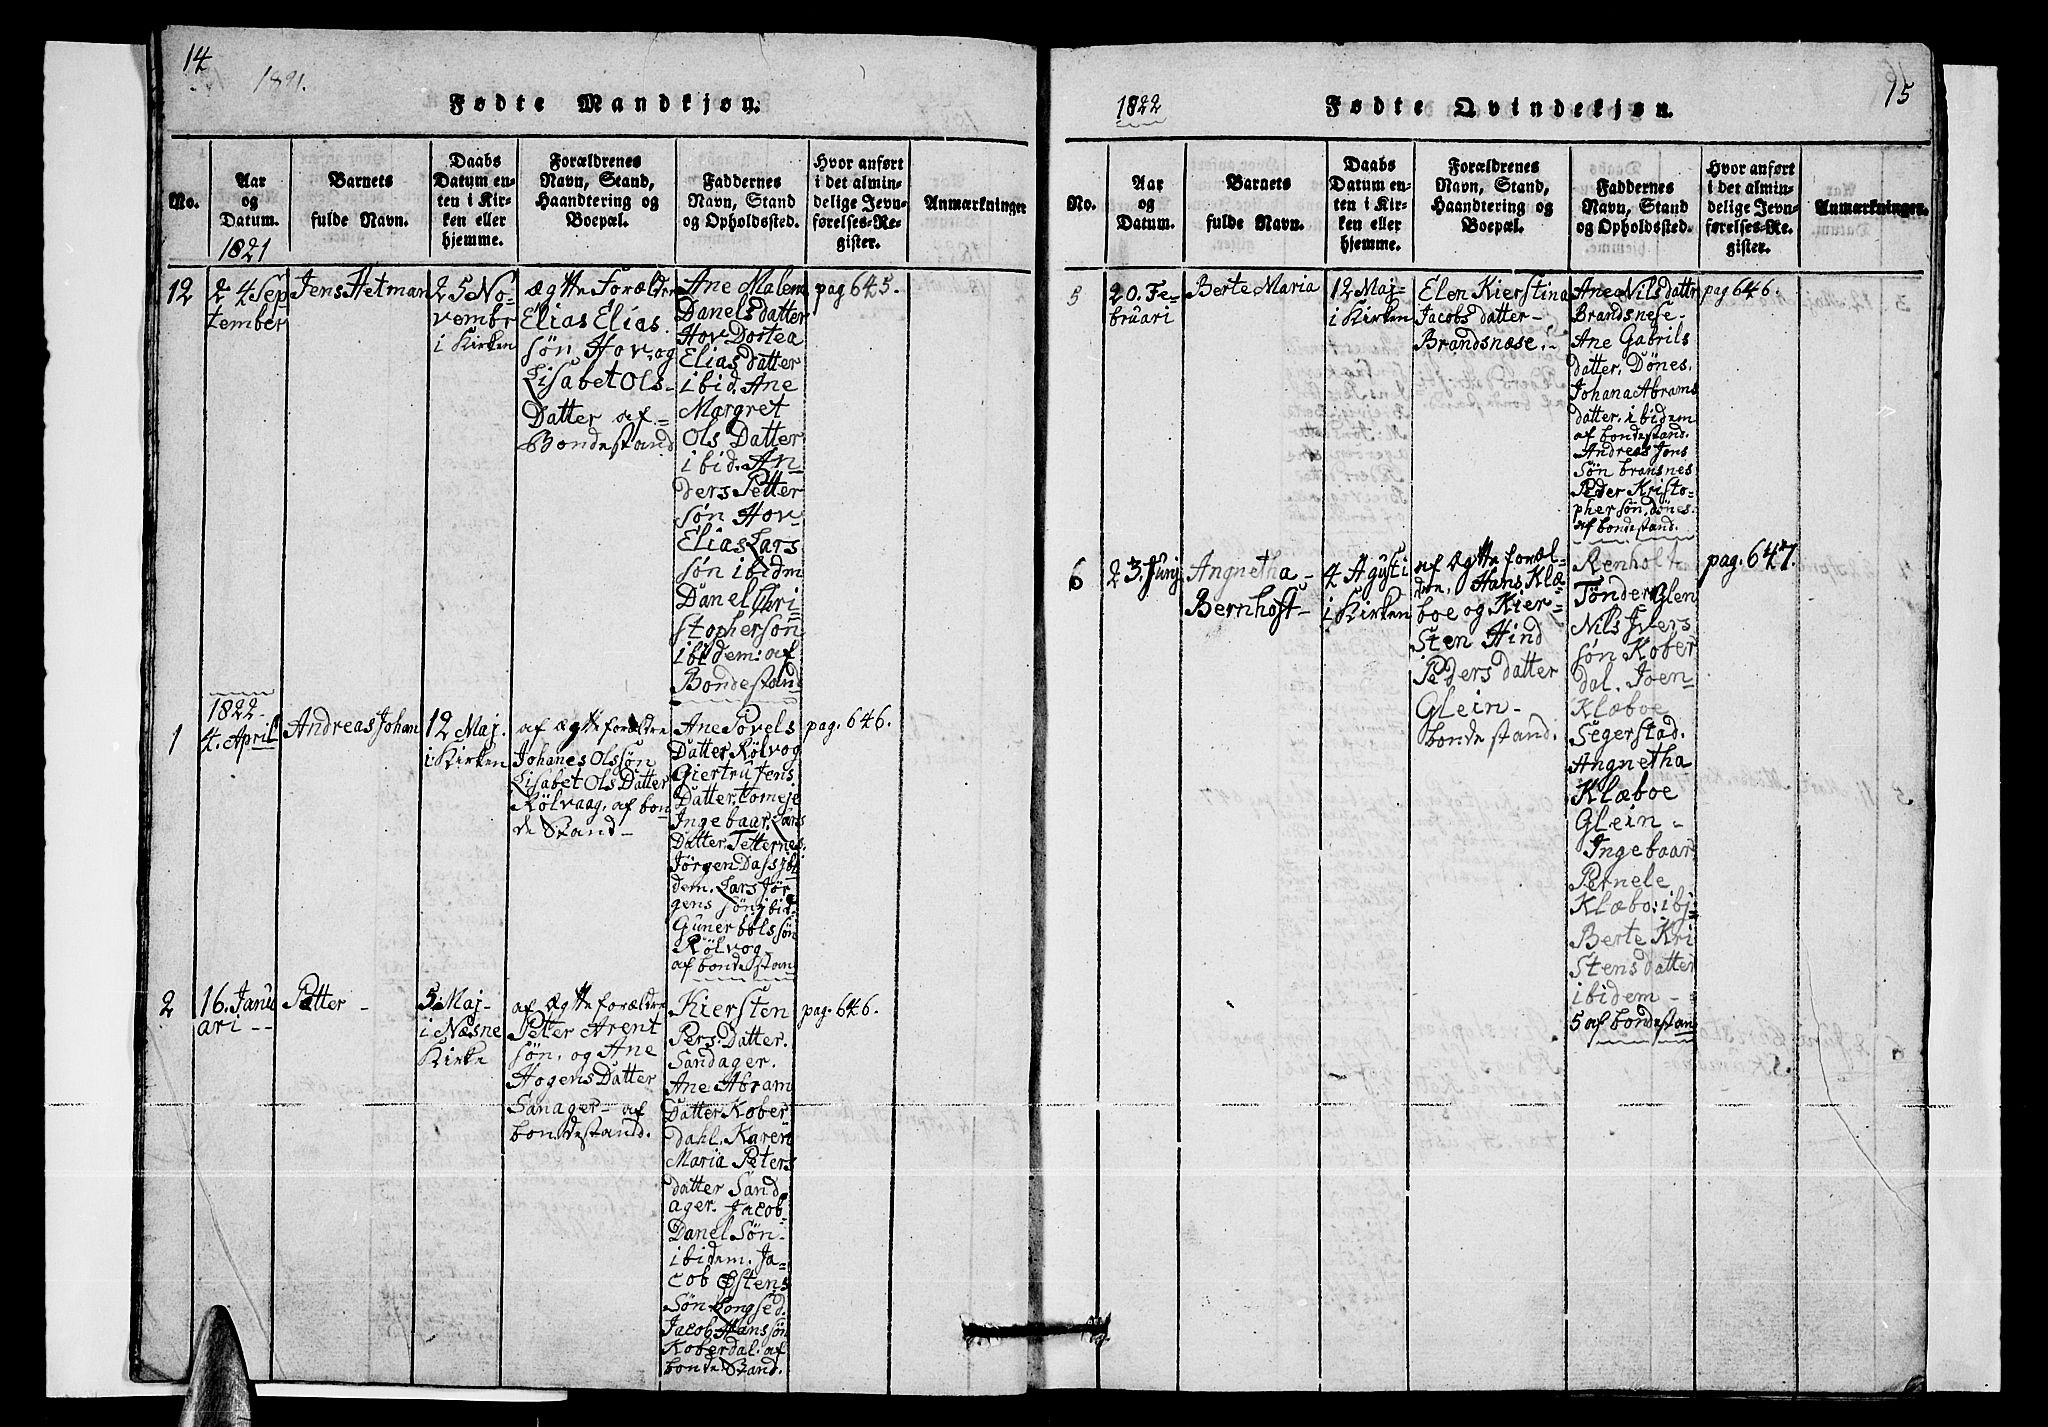 14
1821.
Fødte Mandkjøn.
No.
Aar
og
Datum.
1821
Barnets
fulde Navn.
Daabs
Datum en-
ten i Kir-
ken eller
hjemme.
Forældrenes
Navn, Stand,
Haandtering og
Boepæl.
Faddernes
Navn, Stand
og Opholdssted.
Hvor anført
i det almin-
delige Jevn-
førelses-Re-
gister.
Anmærkninger
12
24 Sep
tember
Jens Hetman
25 No-
vembr
i Kirken
ægtte Forælder
Elias Elias
søn Hov, og
Lisabet Ols-
Datter af
Bondestand
Ane Malem
Danels datter
Hov Dortea
Elias datter
ibid. Ane
Margret
Ols Datter
ibid. An-
ders Petter
søn Hov-
Elias Lars
søn ibidm
Danel Chri-
stophersøn
ibidem: af
Bondestand
pag 645.
1
1822-
4. April
Andreas Johan
12 Maj.
i Kirken
af ægtte forældre
Johanes Olssøn
Lisabet Ols Datter
Rølvaag, af bon
de Stand-
Ane Povels
Datter Rølvog
Giertru Jens
Datter, tomeje
Ingebaar Lars
Datter Tetternes.
Jørgen Dass, ibi
dem. Lars Jør
gens søn, ibid-
Guner bols søn
Rølvog
af bonde stan
pag. 646.
2
16. Janu
ari --
Petter -
5. Maj-
i Næsne
Kirke
af Ægtte forældre
Peter Arent
søn, og Ane
Hogens Datter
Sanager- af
bondestand.
Kiersten
Pers Datter.
Sandager.
Ane Abram
Datter Kober
dahl. Karen
Maria Peters
datter Sand
ager. Jacob
Danel Søn-
ibidem. Ja-
cob Østens
Søn Longsed.
Jacob Hans søn
Koberdal: af
bonde Stand.
pag. 646.
15
1822
Fødte Qvindekjøn.
No.
Aar
og
Datum.
Barnets
fulde Navn.
Daabs
Datum en-
ten i Kir-
ken eller
hjemme.
Forældrenes
Navn, Stand,
Haandtering og
Boepæl.
Faddernes
Navn, Stand
og Opholdssted.
Hvor anført
i det almin-
delige Jevn-
førelses-Re-
gister.
Anmærkninger.
5
20. Fe-
bruari
Berte Maria
12 Maj-
i Kirken
Elen Kierstina
Jacobs datter-
Brandsnæse.-
Ane Nils datter
Brandsnese-
Ane Gabrils
datter. Dönes.
Johana Abrams
datter. ibidem
af bondestand.
Andreas Jens
Søn bransnes
Peder Kristo-
pher søn. dönes.
af bondestand.
pag 646.
6
23. Junj
Angnetha -
Bernhoft-
4 Agusti
i Kirken
af Ægtte foræl-
dre, Hans Klæ-
boe og Kier-
Sten Hind
Peders datter
Glein-
bonde stand.
Renholt-
Tönder Glen
Nils Ivers
søn Kober
dal. Joen-
Klæboe
Segerstad.
Angnetha
Klæboe
Glein-
Ingebaar
Pernele
Klæbo: ibj-
Berte Kri
Stens datter
ibidem -
5 af bondestan
pag. 647.